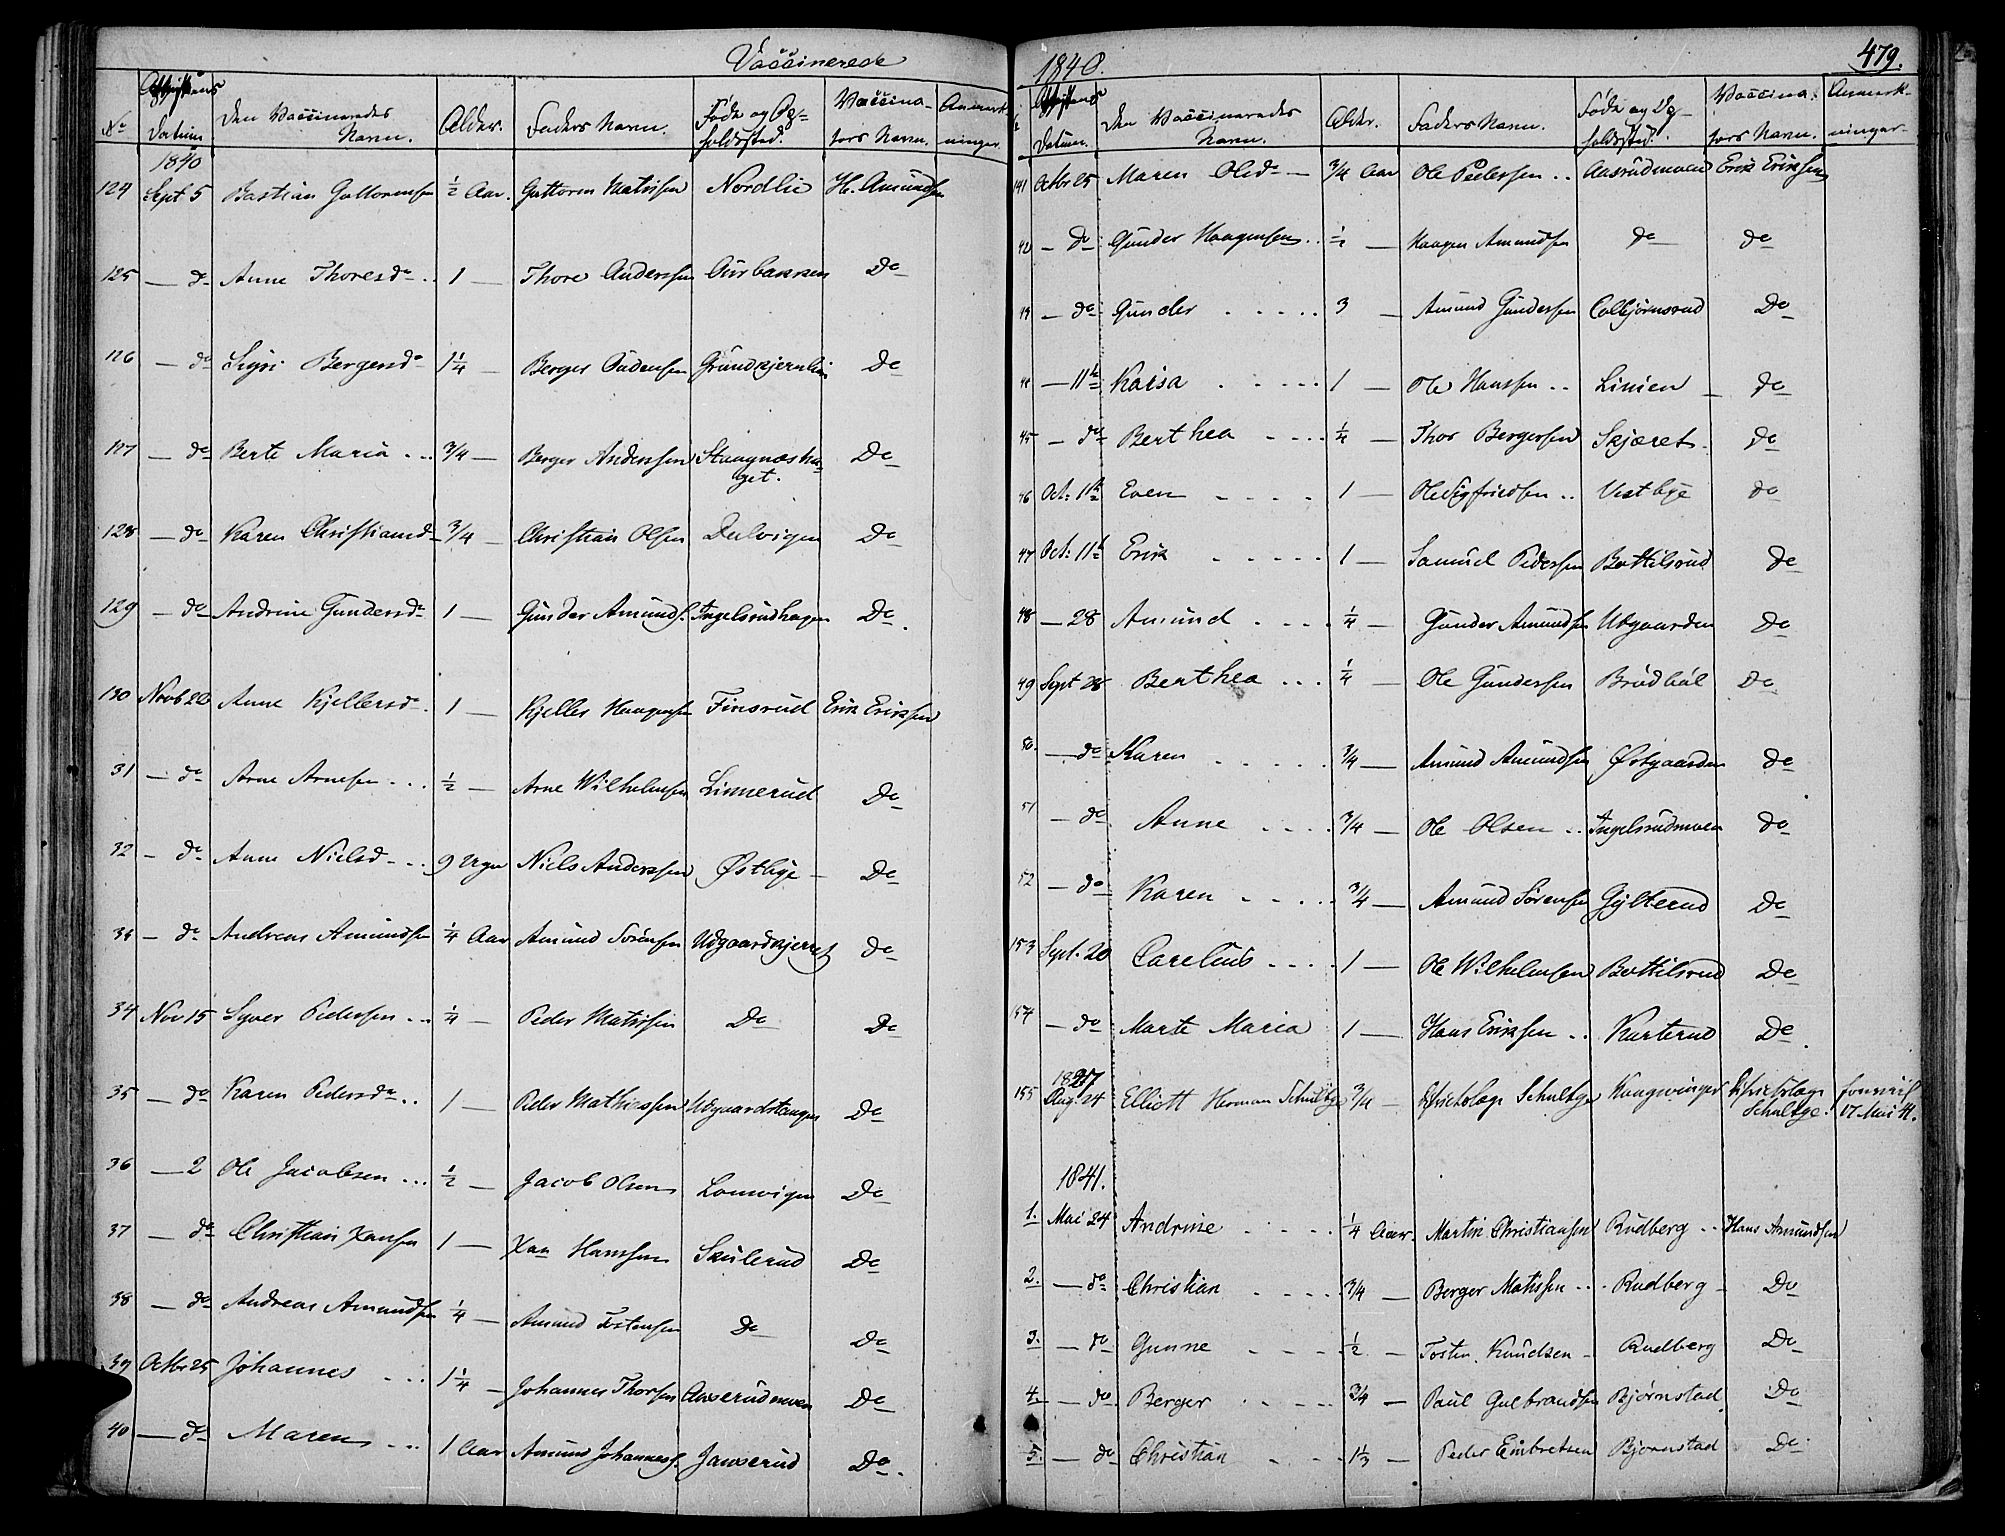 Vaccinerede
No Attestens Datum Den Vaccineredes Navn. Alder. Faders Navn. Føde og Op- holdssted. Vaccina- tors Navn. Anmærk- ninger
1840
124 Sept 5 Bastian Guttormsen ½ Aar. Guttorm Matissen Nordlie H. Amundsen
125 — do Anne Thoresd. 1 — Thore Anderssen Aurbakken Do
126 — do Sigri Bergersd. 1¼ — Berger Do
127 — do Berte Maria 3/4 — Berger Anderssen Do
get.
128 — do Karen Christiansd. 3/4 — Christian Olsen Dulvigen Do
129 — do Andrine Gundersd. 1 — Gunder Amunds. Ingelsrudhagen Do
130 Novb 22 Anne Kjellersd. 1 — Kjeller Haagensen Finsrud Erik Eriksen
31 — do Arne Arnesen ½ — Arne Wilhelmsen Linnerud Do
32 — do Anne Nielsd. 9 Uger Niels Anderssen Østbye — Do
33 — do Andreas Amundsen ¼ Aar Amund Sørensen Udgaardskjerret Do
34 Nov 15 Syver Pedersen ¼ — Peder Matissen Do Do
35 — do Karen Pedersd. 1 — Peder Mathiessen Udgaardstangen Do
36 — 2 Ole Jacobsen ½ — Jacob Olsen Lomvigen Do
37 — do Christian Xansen 1 — Xan Hanssen Skulerud Do
38 — do Andreas Amundsen ¼ — Amund Tostensen Do Do
39 Octbr 25 Johannes 1¼ — Johannes Thorsen Aaserudmoen Do
40 — do Maren 1 Aar Amund Johanness. Janserud Do
1840. 479.
No Attestens Datum. Den Vaccineredes Navn. Alder. Faders Navn. Føde og Op- holdssted. Vaccina- tors Navn. Anmærk- ninger
141 Octbr 25 Maren Olsd. — 3/4 Aar Ole Pedersen Aasrudmoen Erik Eriksen
42 — do Gunder Haagensen ½ — Haagen Amundsen do do
43 — do Gunder 3 — Amund Gundersen Colbjørnsrud Do
44 — 11te Kaisa 1 — Ole Hanssen Linien — do
45 — do Berthea ¼ — Thor Bergersen Skjæret do
46 Oct: 11te Even 1 — Ole Sigfriedsen Vestbye do
47 Oct: 11te Erik 1 — Samuel Pedersen Bottilsrud Do
48 — 28 Amund ¼ — Gunder Amundsen Udgaarden Do
49 Sept 28 Berthea ¼ — Ole Gundersen Brødbøl Do
50. — do Karen 3/4 — Amund Amundsen Østgaarden do
51 — do Anne 3/4 — Ole Olsen Ingelsrudmoen do
52 — do Karen 3/4 — Amund Sørensen Gylterud Do
153 Sept. 20 Carelius 1 — Ole Wilhelmsen Bottilsrud Do
154 — do Marte Maria 1 — Hans Eriksen Kurterud Do
1827
155 Aug. 24 Elliott Herman Schultze 3/4 — Districtslæge Schultze Kongsvinger Districtslæge Schultze. 17 Mai 41.
1841.
1. Mai 24 Andrine ¼ Aar. Martin Christiansen Rudberg Hans Amundsen
2. — do Christian 3/4 — Berger Matissen Rudberg — Do
3. — do Gunne ½ — Tosten Knudsen — Rudberg Do
4. — do Berger 3/4 — Paul Gulbrandsen Bjørnstad Do
5. — do Christian 1⅓ — Peder Embretsen Bjørnstad Do